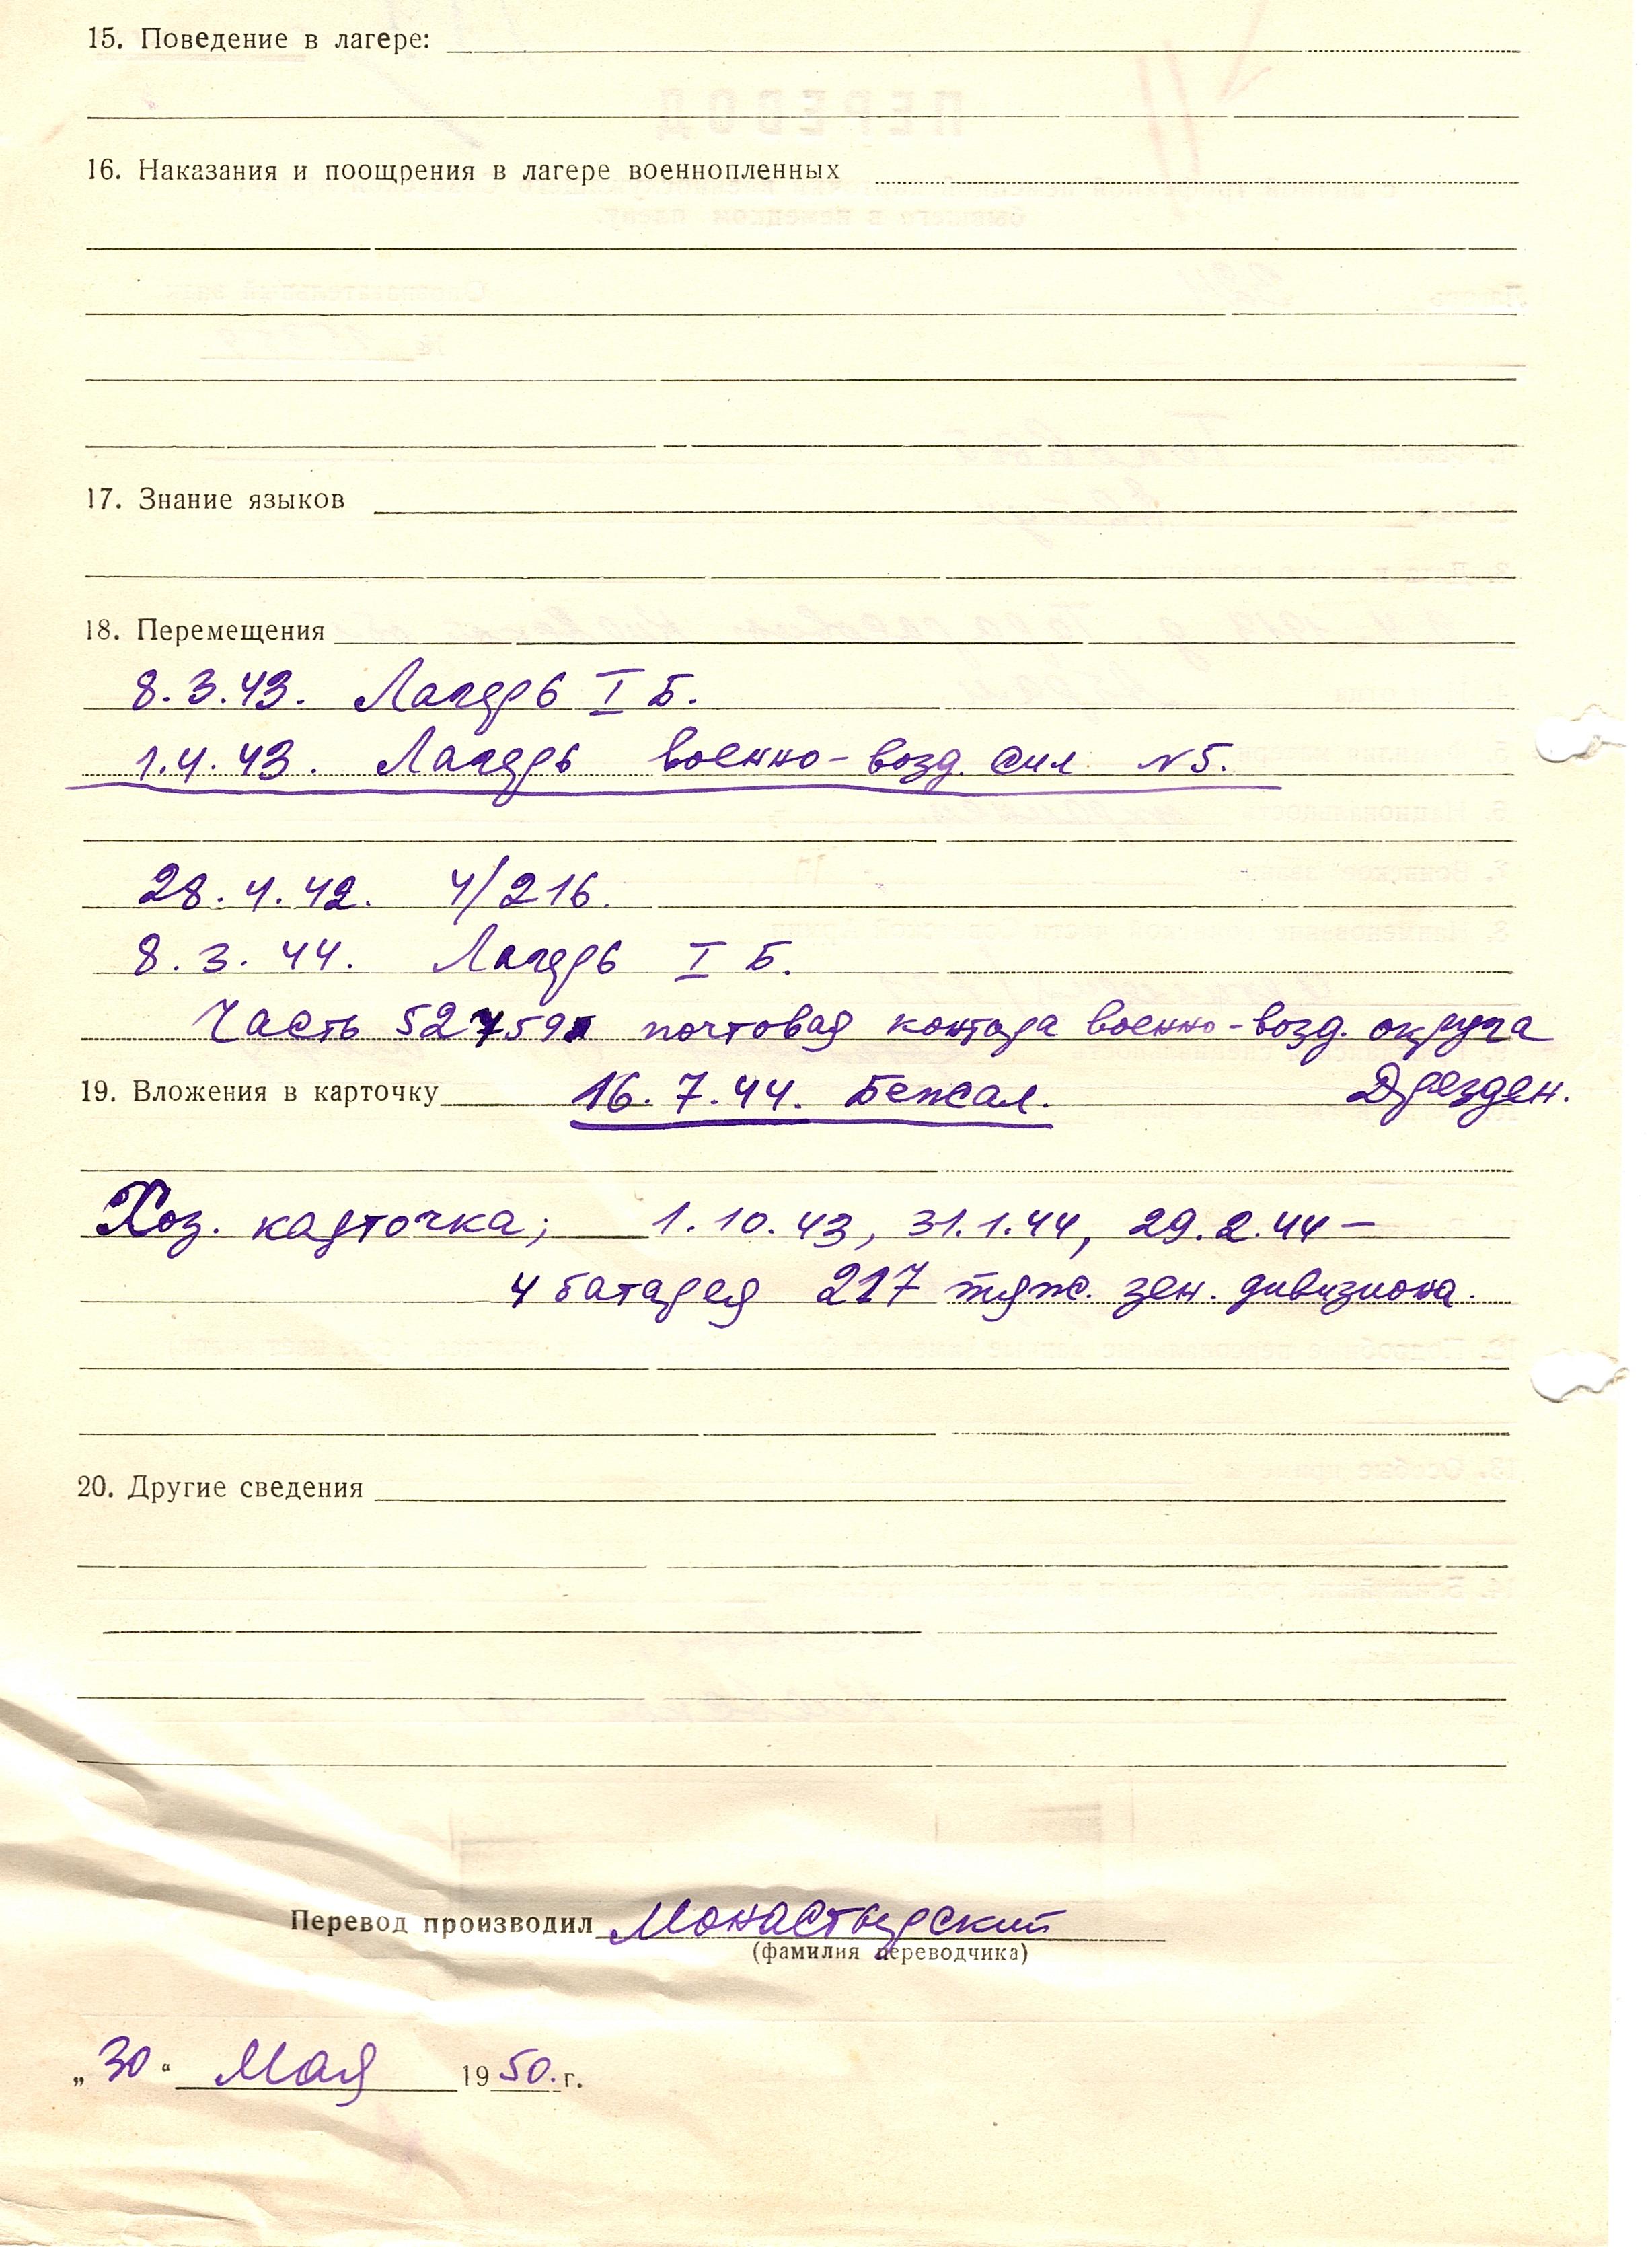 15. Поведение в лагере:
16. Наказания и поощрения в лагере военнопленных
17. Знание языков
18. Перемещения
8. 3. 43. Лагерь I Б.
1. 4. 43. Лагерь военно-возд. сил №5.
28. 4. 42. 4/216.
8. 3. 44. Лагерь I Б.
Часть почтовая контора военно-возд. округа
Дрезден.
19. Вложения в карточку 16. 7. 44. Бежал.
Хоз. карточка; 1. 10. 43, 31. 1. 44, 29. 2. 44 —
4 батарея 217 тяж. зен. дивизиона.
20. Другие сведения
Перевод производил Монастырский
(фамилия переводчика)
„30“ Мая 1950. г.